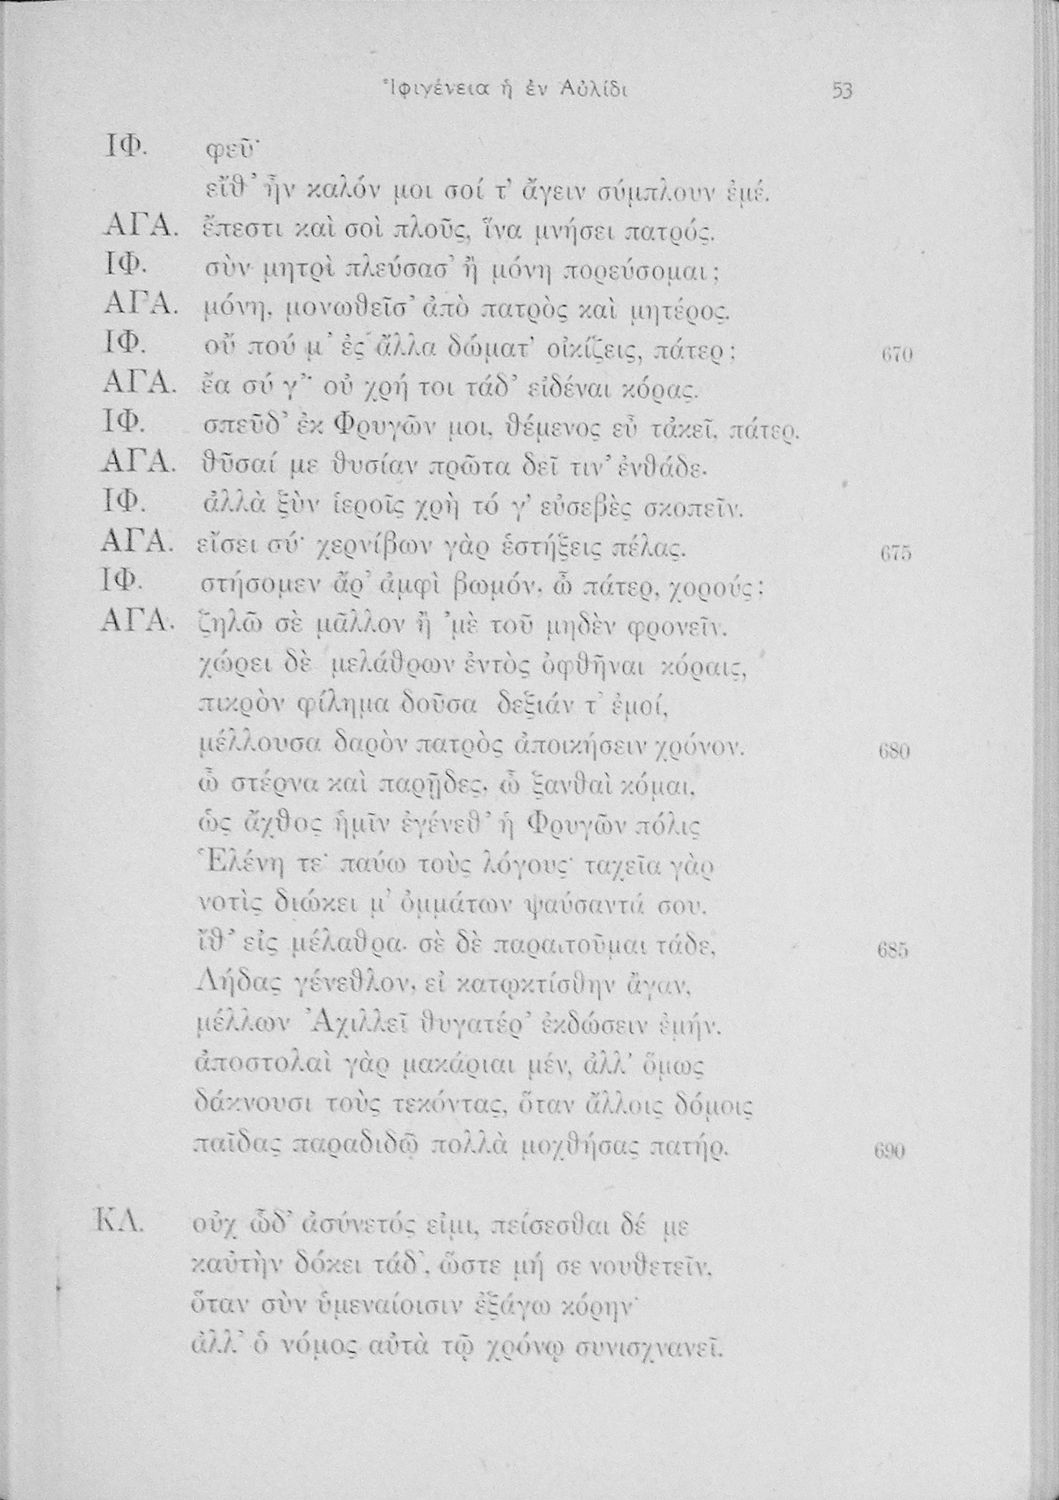 Ἰφιγένεια ἡ ἐν Αὐλίδι 53
ΙΦ. φεῦ·
εἴθ' ἦν καλόν μοι σοί τ' ἄγειν σύμπλουν ἐμέ.
ΑΓΑ. ἔπεστι καὶ σοὶ πλοῦς, ἵνα μνήσει πατρός.
ΙΦ. σὺν μητρὶ πλεύσασ' ἢ μόνη πορεύσομαι;
ΑΓΑ. μόνη, μονωθεῖσ' ἀπὸ πατρὸς καὶ μητέρος.
ΙΦ. οὔ πού μ' ἐς ἄλλα δώματ' οἰκίζεις, πάτερ; 670
ΑΓΑ. ἔα σύ γ'· οὐ χρή τοι τάδ' εἰδέναι κόρας.
ΙΦ. σπεῦδ' ἐκ Φρυγῶν μοι, θέμενος εὖ τἀκεῖ, πάτερ.
ΑΓΑ. θῦσαί με θυσίαν πρῶτα δεῖ τιν' ἐνθάδε.
ΙΦ. ἀλλὰ ξὺν ἱεροῖς χρὴ τό γ' εὐσεβὲς σκοπεῖν.
ΑΓΑ. εἴσει σύ· χερνίβων γὰρ ἑστήξεις πέλας. 675
ΙΦ. στήσομεν ἄρ' ἀμφὶ βωμόν, ὦ πάτερ, χορούς;
ΑΓΑ. ζηλῶ σὲ μᾶλλον ἢ 'μὲ τοῦ μηδὲν φρονεῖν.
χώρει δὲ μελάθρων ἐντὸς ὀφθῆναι κόραις,
πικρὸν φίλημα δοῦσα δεξιάν τ' ἐμοί,
μέλλουσα δαρὸν πατρὸς ἀποικήσειν χρόνον. 680
ὦ στέρνα καὶ παρῇδες, ὦ ξανθαὶ κόμαι,
ὡς ἄχθος ἡμῖν ἐγένεθ' ἡ Φρυγῶν πόλις
Ἑλένη τε· παύω τοὺς λόγους· ταχεῖα γὰρ
νοτὶς διώκει μ' ὀμμάτων ψαύσαντά σου.
ἴθ' εἰς μέλαθρα. σὲ δὲ παραιτοῦμαι τάδε, 685
Λήδας γένεθλον, εἰ κατῳκτίσθην ἄγαν,
μέλλων Ἀχιλλεῖ θυγατέρ' ἐκδώσειν ἐμήν.
ἀποστολαὶ γὰρ μακάριαι μέν, ἀλλ' ὅμως
δάκνουσι τοὺς τεκόντας, ὅταν ἄλλοις δόμοις
παῖδας παραδιδῷ πολλὰ μοχθήσας πατήρ. 690
ΚΛ. οὐχ ὧδ' ἀσύνετός εἰμι, πείσεσθαι δέ με
καὐτὴν δόκει τάδ', ὥστε μή σε νουθετεῖν,
ὅταν σὺν ὑμεναίοισιν ἐξάγω κόρην·
ἀλλ' ὁ νόμος αὐτὰ τῷ χρόνῳ συνισχνανεῖ.